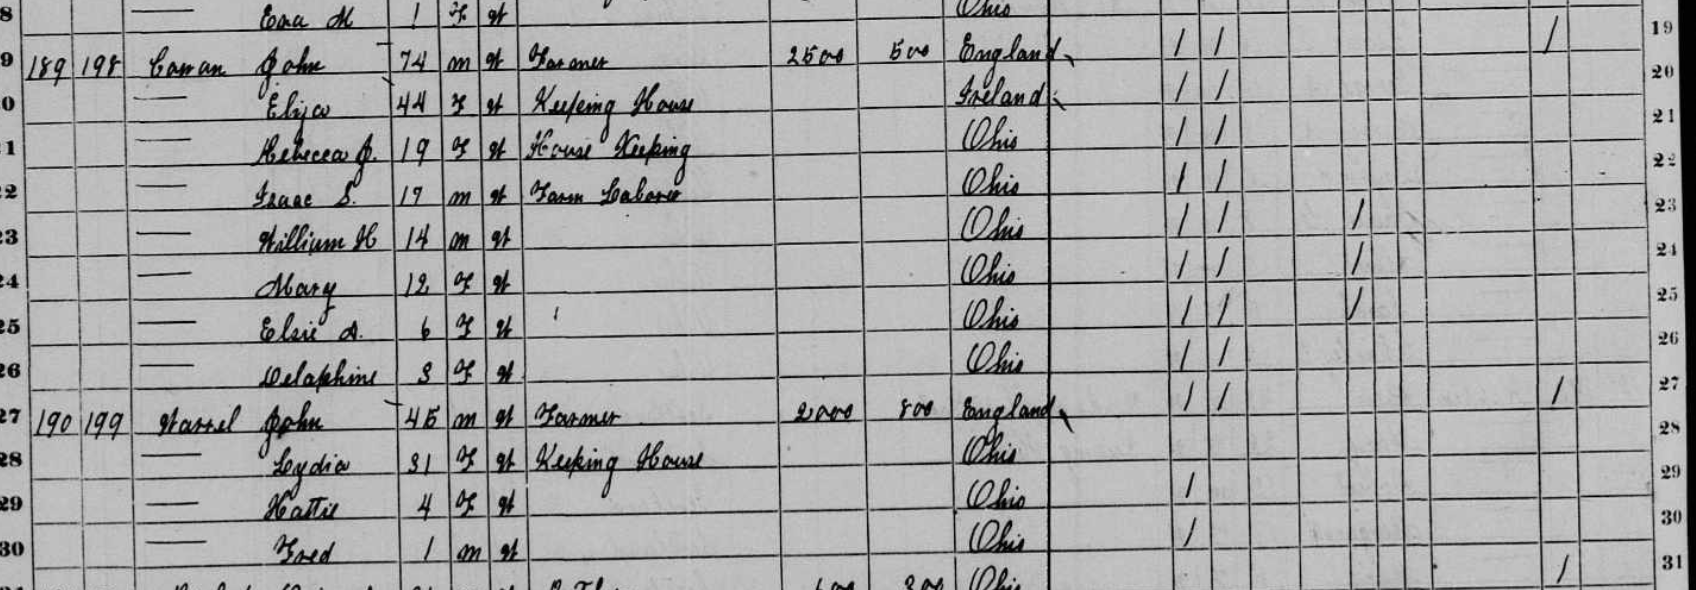 8 Eva M 1 F W Ohio 19
9 189 198 Carran John 74 m W Farmer 2500 500 England / / / 20
0 — Eliza 44 F W Keeping House Ireland / / 21
1 — Rebecca J. 19 F W House Keeping Ohio / / 22
22 — Isaac S. 17 m W Farm Laborer Ohio / / 23
23 — William H 14 m W Ohio / / / 24
24 — Mary 12 F W Ohio / / / 25
25 — Elsie A. 6 F W Ohio / / / 26
26 — Delaphine 3 F W Ohio / / 27
27 190 199 John 45 m W Farmer 2000 800 England / / / 28
28 — Lydia 31 F W Keeping House Ohio 29
29 — Hattie 4 F W Ohio / 30
30 — Fred 1 m W Ohio / 31
300 Ohio /